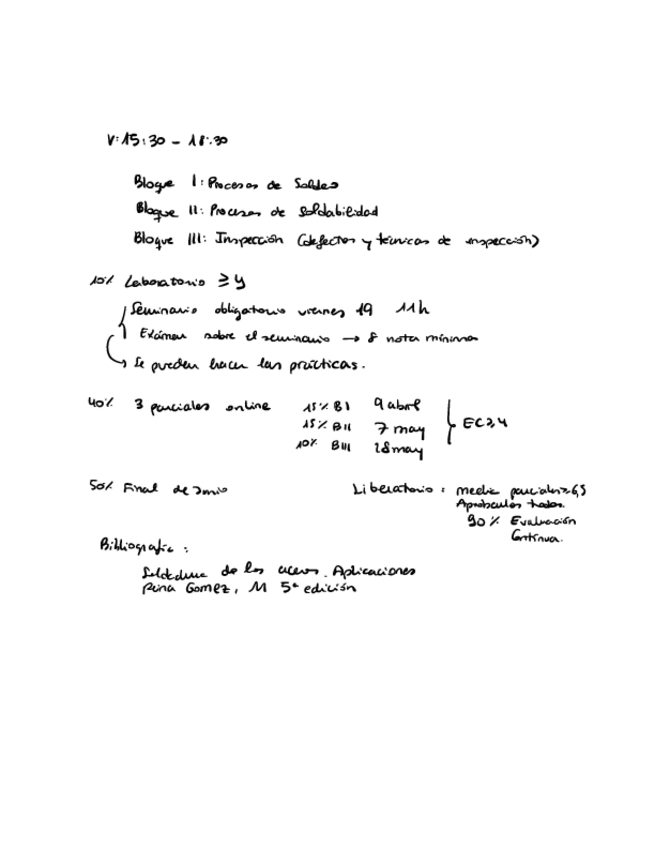 V: 15:30 - 18:30
Bloque I: Procesos de Soldeo
Bloque II: Procesos de Soldabilidad
Bloque III: Inspección (defectos y técnicas de inspección)
10% Laboratorio ≥ 4
Seminario obligatorio viernes 19 11h
Exámen sobre el seminario → 8 nota mínima
Se pueden hacer las prácticas.
40% 3 parciales online 15% BI 9 abril
15% BII 7 may
10% BIII 28 may
EC ≥ 4
50% Final de Junio Liberatorio: media parciales ≥ 6,5
Aprobados todos.
90% Evaluación
Continua.
Bibliografía:
Soldadura de los aceros. Aplicaciones
Reina Gomez, M 5ª edición